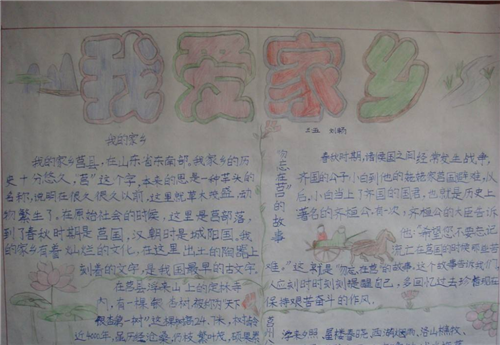 我爱家乡
我的家乡
我的家乡莒县,在山东省东南部,我家乡的历
史十分悠久,莒”这个字,本来的思是一种草头的
名称,说明在很久很久以前,这里就草木茂盛,动
物繁生了,在原始社会的时候,这里是莒部落,
到了春秋时期是莒国,汉朝时是城阳国,我
的家乡有着灿烂的文化,在这里出土的陶尊上
刻着的文字,是我国最早的古文字.
在莒县浮来山上的定林寺
内,有一棵银杏树被称为“天下
银杏第一树”这棵树高24.7米,
近4000年,虽历经沧桑,仍枝繁叶茂,硕果累
刘畅
“勿忘在莒”的故事
春秋时期,诸侯国之间经常发生战争,
齐国的公子小白到他的姥姥家莒国避难,以
后,小白当上了齐国的国君,也就是历史上
著名的齐桓公,有一次,齐桓公的大臣告诉
他:“希望您不要忘记
流亡在莒国的时候那些苦
难。”这就是“勿忘在莒”的故事,这个故事告诉我们
人应到时时刻刻提醒自己,多回忆过去
保持艰苦奋斗的作风。
浮来夕照,屋楼春晓,西湖烟雨,